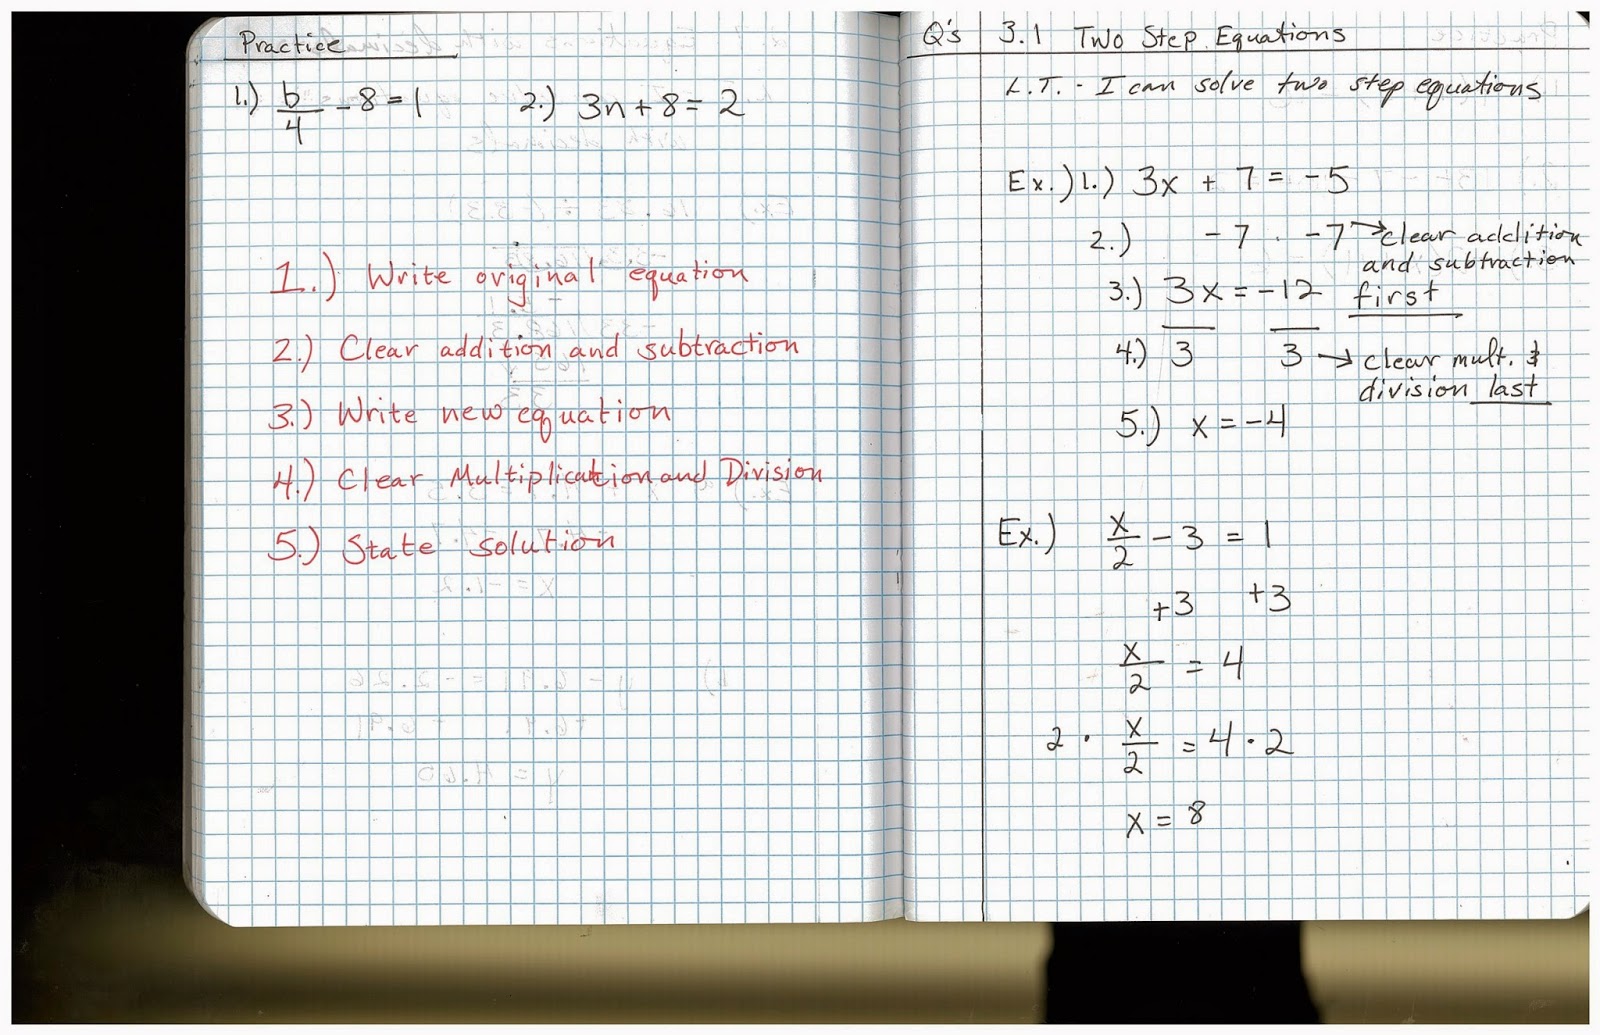 Practice
1.) b/4 - 8 = 1 2.) 3n + 8 = 2
1.) Write original equation
2.) Clear addition and subtraction
3.) Write new equation
4.) Clear Multiplication and Division
5.) State solution
Q's 3.1 Two Step Equations
L.T. - I can solve two step equations
Ex.) 1.) 3x + 7 = -5
2.) -7 -7 → clear addition
and subtraction
3.) 3x = -12 first
4.) 3 3 → clear mult. &
division last
5.) x = -4
Ex.) x/2 - 3 = 1
+3 +3
x/2 = 4
2 · x/2 = 4 · 2
x = 8